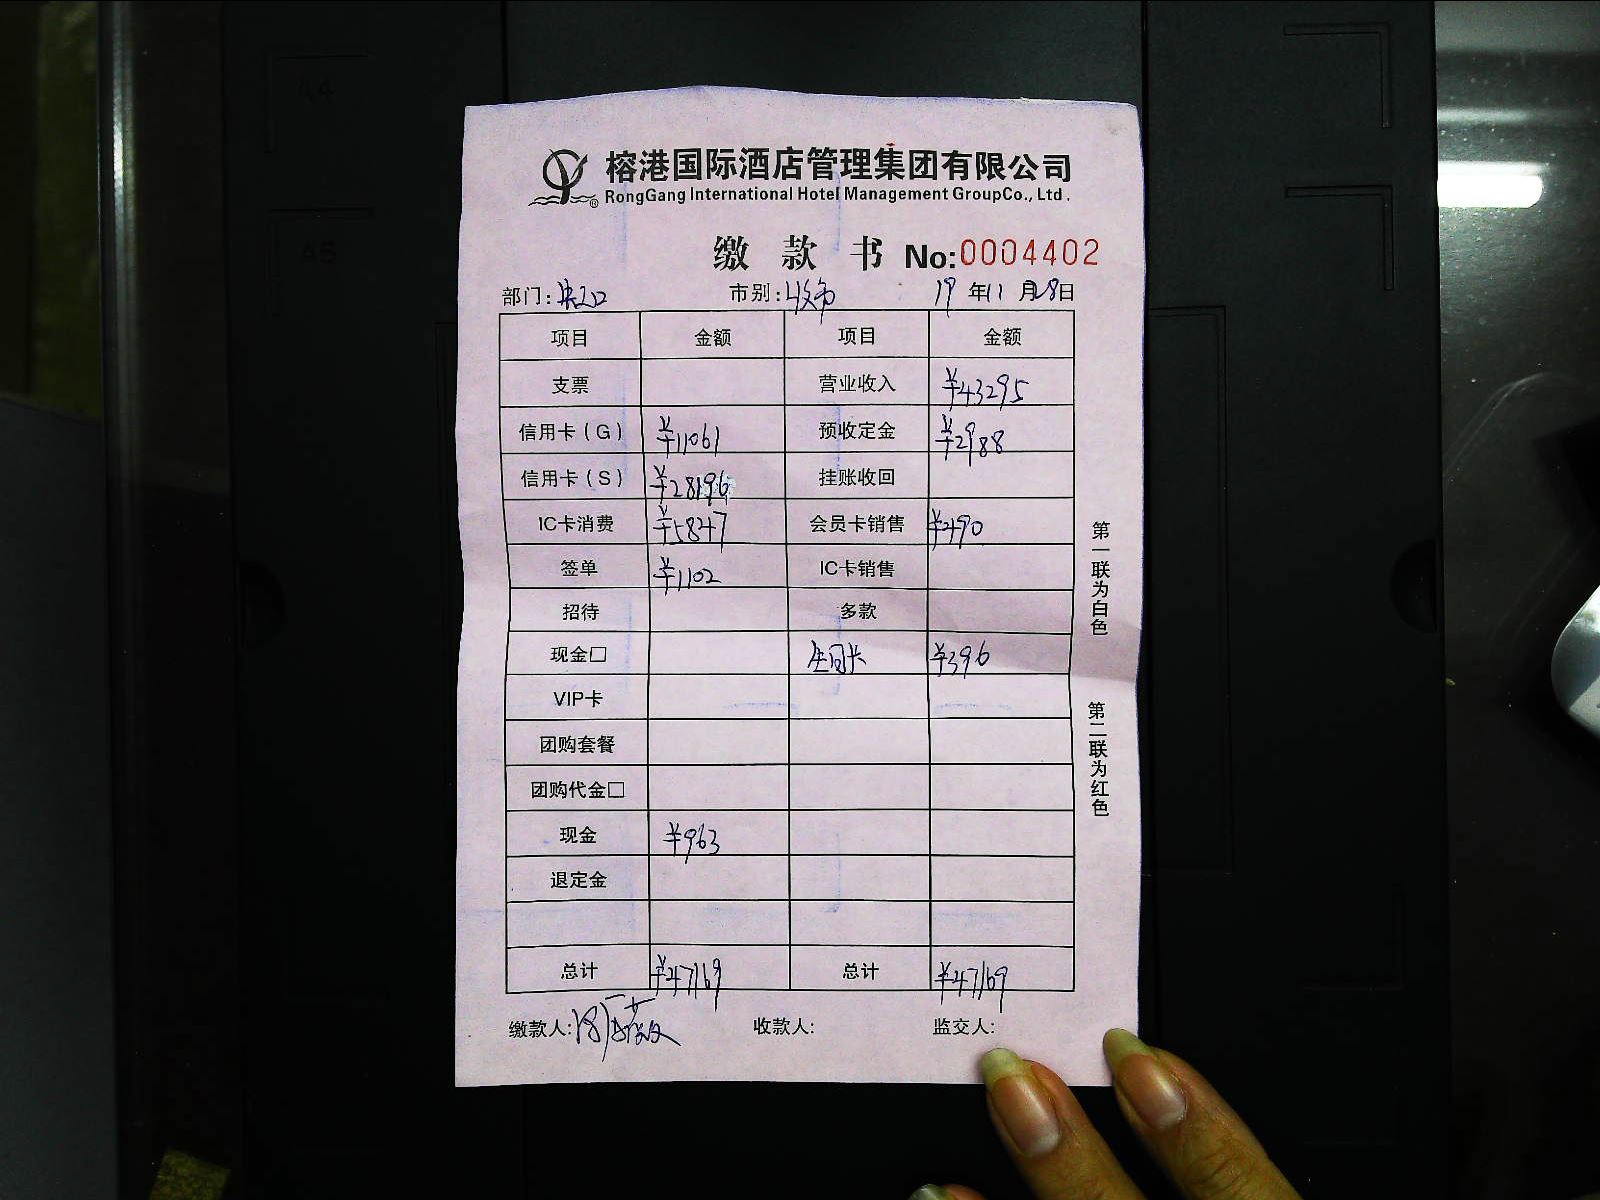 榕港国际酒店管理集团有限公司
RongGang International Hotel Management GroupCo., Ltd.
缴款书 No:0004402
部门: 市别: 收市 19年11月28日
项目 金额 项目 金额
支票 营业收入 ¥43295
信用卡(G) ¥11061 预收定金 ¥2988
信用卡(S) ¥28196 挂账收回
IC卡消费 ¥5847 会员卡销售 ¥490
签单 ¥1102 IC卡销售
招待 多款
现金□ ¥396
VIP卡
团购套餐
团购代金□
现金 ¥963
退定金
总计 ¥47169 总计 ¥47169
缴款人: 收款人: 监交人:
第一联为白色
第二联为红色